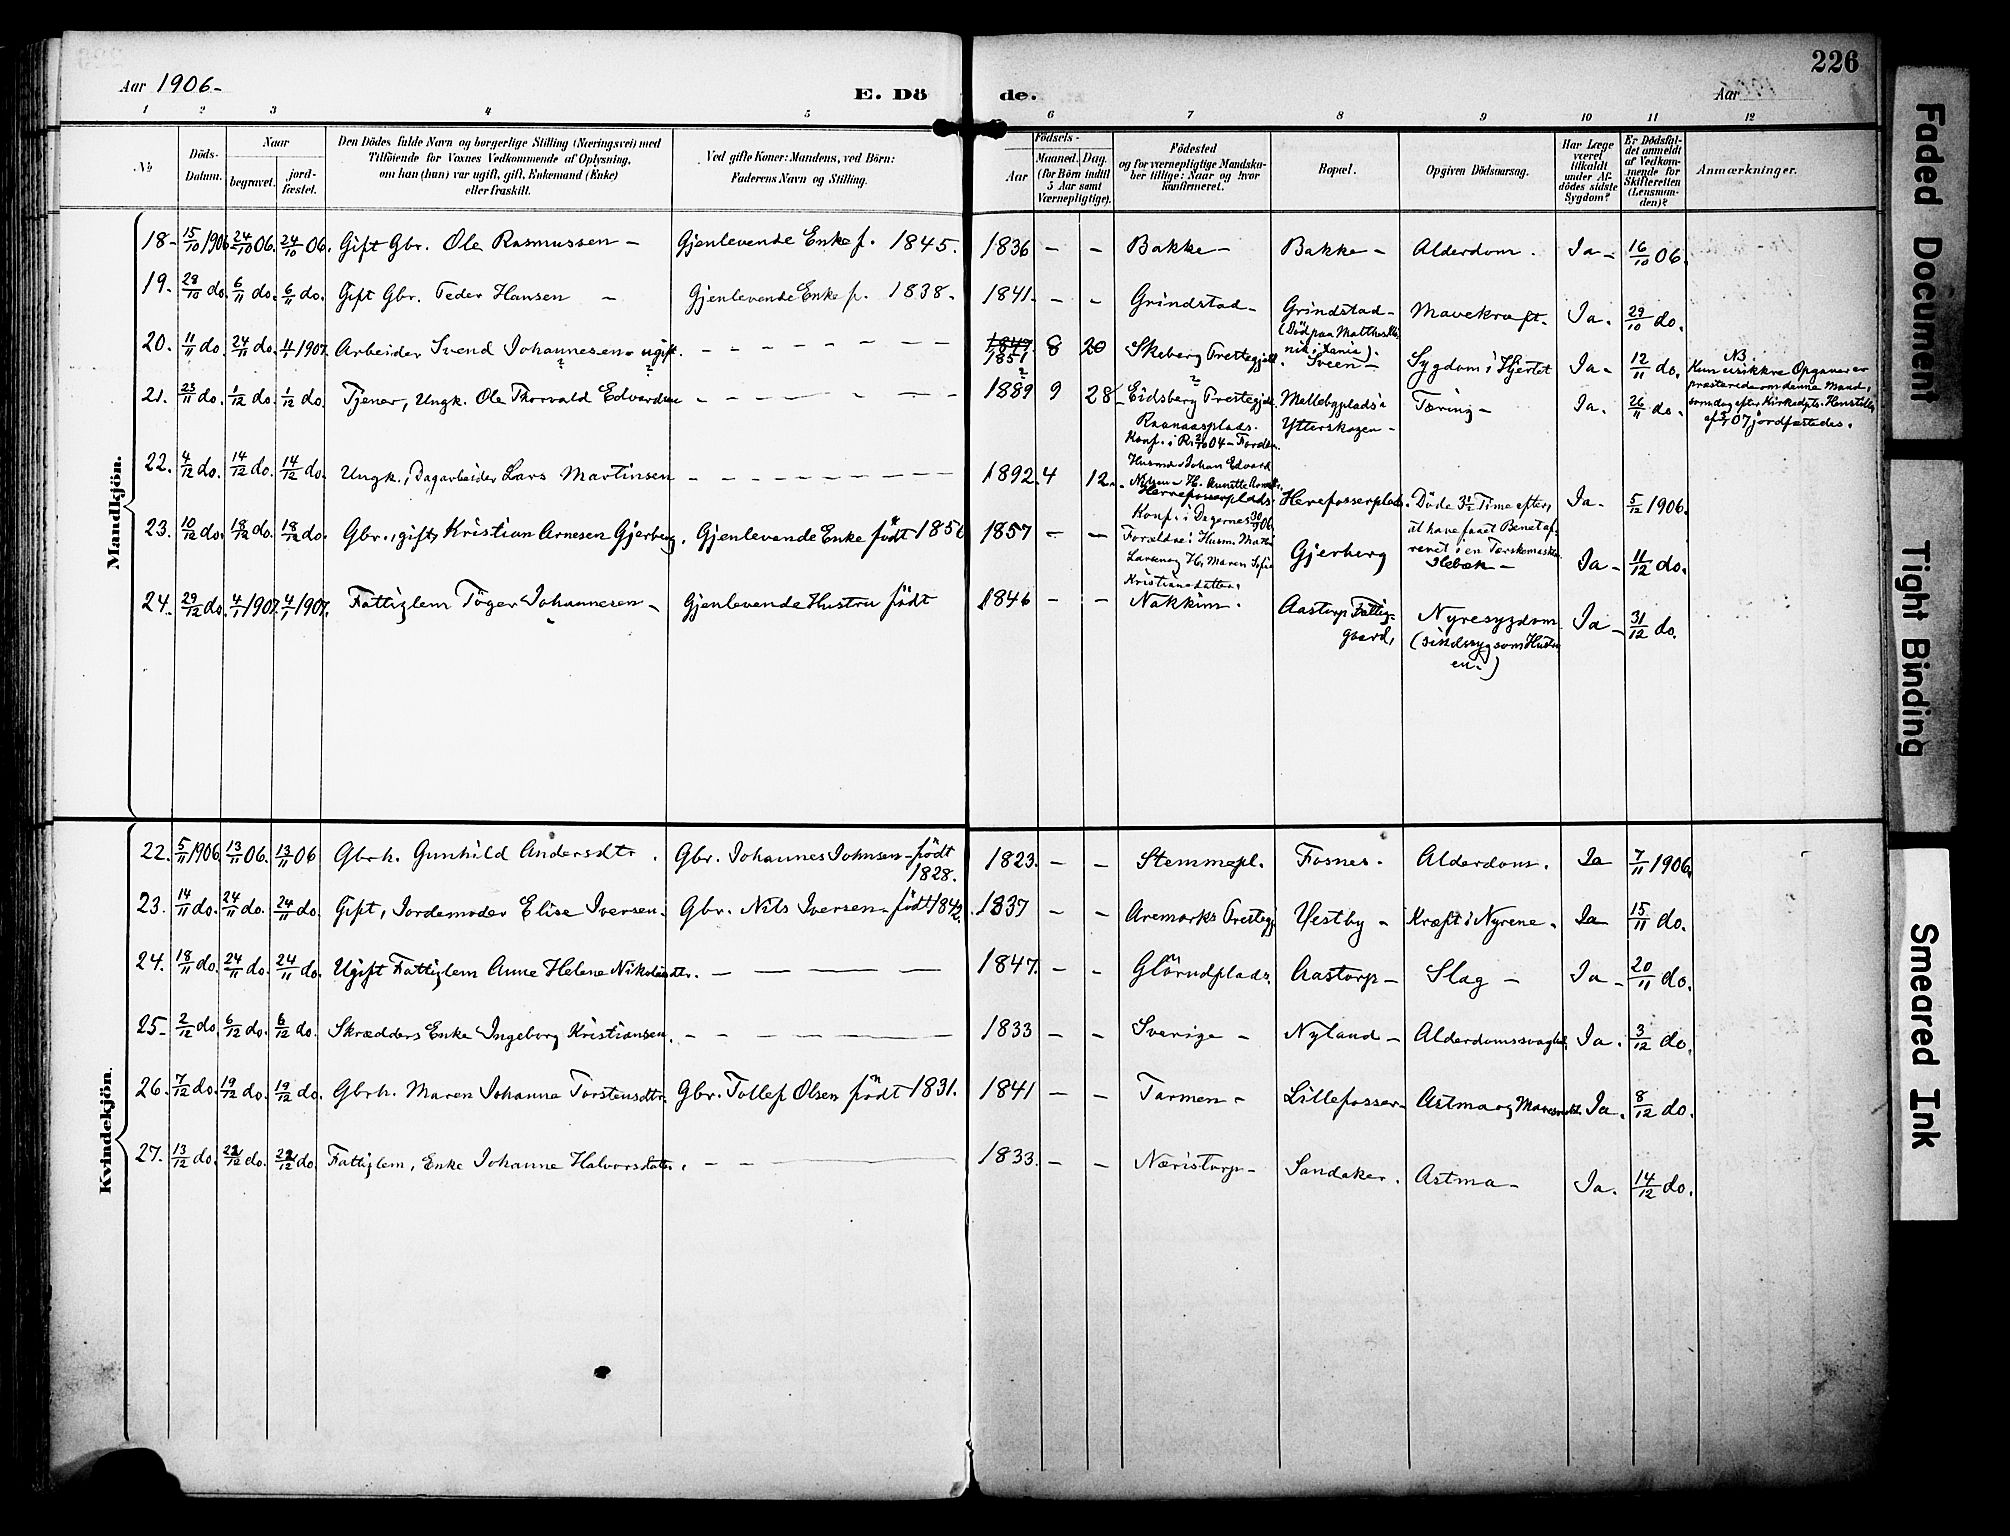 226
Aar 1906-
E. Dö de.
Aar
1 2 3 4 5 6 7 8 9 10 11 12
No
Döds-
Datum.
Naar
begravet.
jord-
fæstet.
Den Dödes fulde Navn og borgerlige Stilling (Næringsvei) med
Tilföiende for Voxnes Vedkommende af Oplysning,
om han (hun) var ugift, gift, Enkemand (Enke)
eller fraskilt.
Ved gifte Koner: Mandens, ved Börn:
Faderens Navn og Stilling.
Födsels-
Aar
Maaned. Dag.
(for Börn indtil
5 Aar samt
Værnepligtige).
Födested
og for værnepligtige Mandska-
ber tillige: Naar og hvor
konfirmeret.
Bopæl.
Opgiven Dödsaarsag.
Har Læge
været
tilkaldt
under Af-
dödes sidste
Sygdom?
Er Dödsfal-
det anmeldt
af Vedkom-
mende for
Skifteretten
(Lensman-
den)?
Anmærkninger.
Mandkjön.
18- 15/10 1906 24/10 06. 24/10 06. Gift Gbr. Ole Rasmussen - Gjenlevende Enke f. 1845. 1836 - - Bakke - Bakke - Alderdom. Ja - 16/10 06.
19. 28/10 do. 6/11 do. 6/11 do. Gift Gbr. Peder Hansen - Gjenlevende Enke f. 1838. 1841. - - Grindstad - Grindstad - Mavekræft. Ja. 29/10 do.
20. 11/11 do. 24/11 do. 4/1 1907. Arbeider Svend Johannesen - ugift. 1849 1851 8 20 Skeberg Prestegjeld.
(Död paa
Sveen -
Sygdom i Hjertet Ja - 12/11 do.
NB
Kun usikkre Opgaver er
præsterede om denne Mand,
07 jordfæstedes.
21. 23/11 do. 1/12 do. 1/12 do. Tjener, Ungk. Ole Thorvald Edvardsen 1889 9 28 Eidsberg Prestegjeld.
Raanaasplads.
Konf. i R. 04 -
Husm. Johan Edvard
Mellebyplads i
Ytterskogen -
Tæring - Ja. 26/11 do.
22. 4/12 do. 14/12 do. 14/12 do. Ungk., Dagarbeider Lars Martinsen 1892. 4 12.
Herrefosserplads
Konf. i Degernes 06
Forældre: Husm.
H. Maren Sofie
Kristiansdatter.
Herefosserplads. Döde 3½ Time efter,
at have faaet Benet af-
revet i en Tærskemaskin. Ja. 5/12 1906.
23. 10/12 do. 18/12 do. 18/12 do. Gbr., gift, Kristian Arnesen Gjerberg. Gjenlevende Enke födt 1856 1857 - - Gjerberg Slebæk - Ja - 11/12 do.
24. 29/12 do. 4/1 1907. 4/1 1907. Fattiglem Töger Johannesen - Gjenlevende Hustru födt 1846 - - Nakkim. Aastorp Fattig-
gaard,
Nyresygdom
(sindssyg som Hustru
en.)
Ja - 31/12 do.
Kvindekjön.
22. 5/11 1906. 13/11 06. 13/11 06 Gbrh. Gunhild Andersdtr. Gbr. Johannes Johnsen - födt
1828.
1823. - - Stemmepl. Fosnes. Alderdom. Ja 7/11 1906.
23. 14/11 do. 24/11 do. 24/11 do. Gift, Jordemoder Elise Iversen. Gbr. Nils Iversen - födt 1842. 1837 - - Aremarks Prestegj. Vestby - Kræft i Nyrene. Ja 15/11 do.
24. 18/11 do. 24/11 do. 24/11 do. Ugift Fattiglem Anne Helene Nikolaisdtr. 1847. - - Glörudplads. Aastorp - Slag - Ja - 20/11 do.
25- 2/12 do. 6/12 do. 6/12 do. Skrædders Enke Ingeborg Kristiansen. 1833 - - Sverige - Nyland - Alderdomssvaghed. Ja. 3/12 do.
26. 7/12 do. 19/12 do. 19/12 do. Gbrh. Maren Johanne Torstensdtr. Gbr. Tollef Olsen födt 1831. 1841 - - Tarmen - Lillefosser - Astma og Ja. 8/12 do.
27. 13/12 do. 22/12 do. 22/12 do. Fattiglem, Enke Johanne Halvorsdatter. 1833. - - Næristorp - Sandaker. Astma - Ja. 14/12 do.
Faded Document
Tight Binding
Smeared Ink